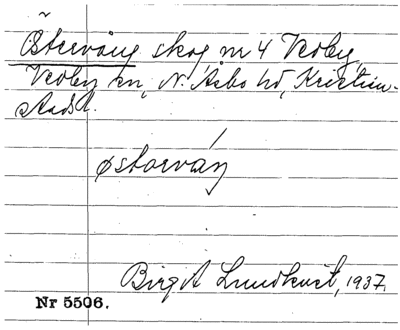 Östervång skog nr 4 Vedby,
Vedby sn, N. Åsbo hd, Kristian-
stads l.
østorváŋ
Birgit Lundkvist, 1937.
Nr 5506.